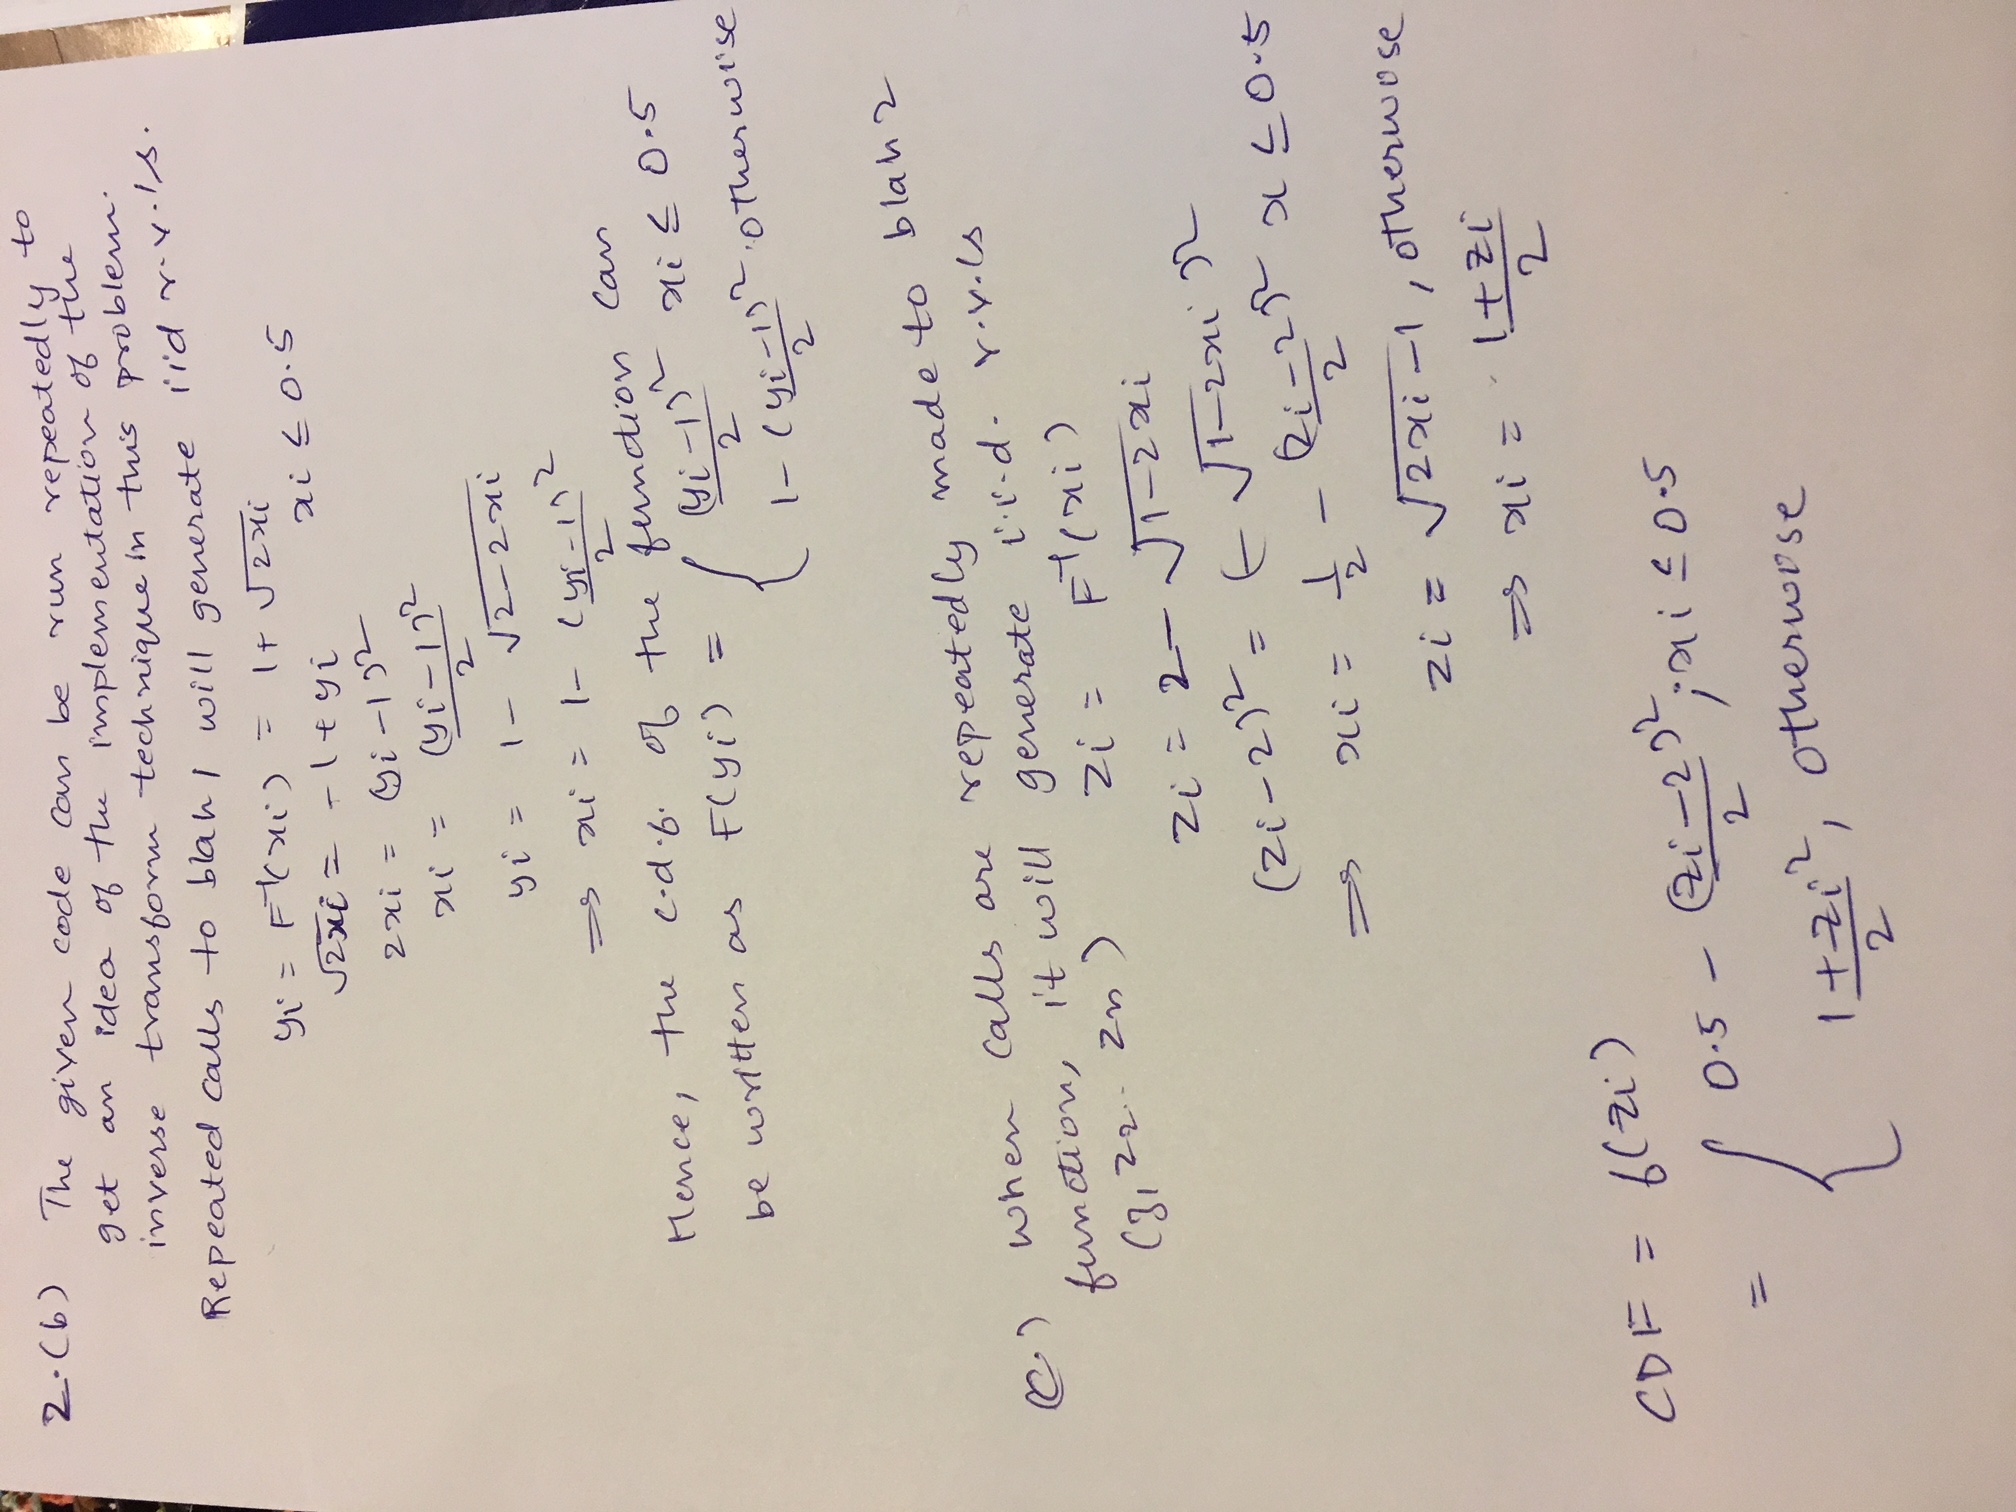 2.(b) The given code can be run repeatedly to
get an idea of the implementation of the
inverse transform technique in this problem.
Repeated calls to blah1 will generate iid r.v.'s.
yi = F⁻¹(xi) = 1+ √2xi
√2xi = -1+yi xi ≤ 0.5
2xi = (yi-1)²
xi = (yi-1)²/2
yi = 1- √2-2xi
⇒ xi = 1- (yi-1)²/2
Hence, the c.d.f. of the function can
be written as F(yi) = { (yi-1)²/2 xi ≤ 0.5
1-(yi-1)²/2 otherwise
(c.) when calls are repeatedly made to blah2
function, it will generate i.i.d. r.v.'s
(z1, z2.. zn) zi = F⁻¹(xi)
zi = 2- √1-2xi
(zi-2)² = (-√1-2xi)²
⇒ xi = 1/2 - (zi-2)²/2 x ≤ 0.5
zi = √2xi-1, otherwose
⇒ xi = 1+zi/2
CDF = f(zi)
= { 0.5 - (zi-2)²/2 ; xi ≤ 0.5
1+zi²/2, otherwise